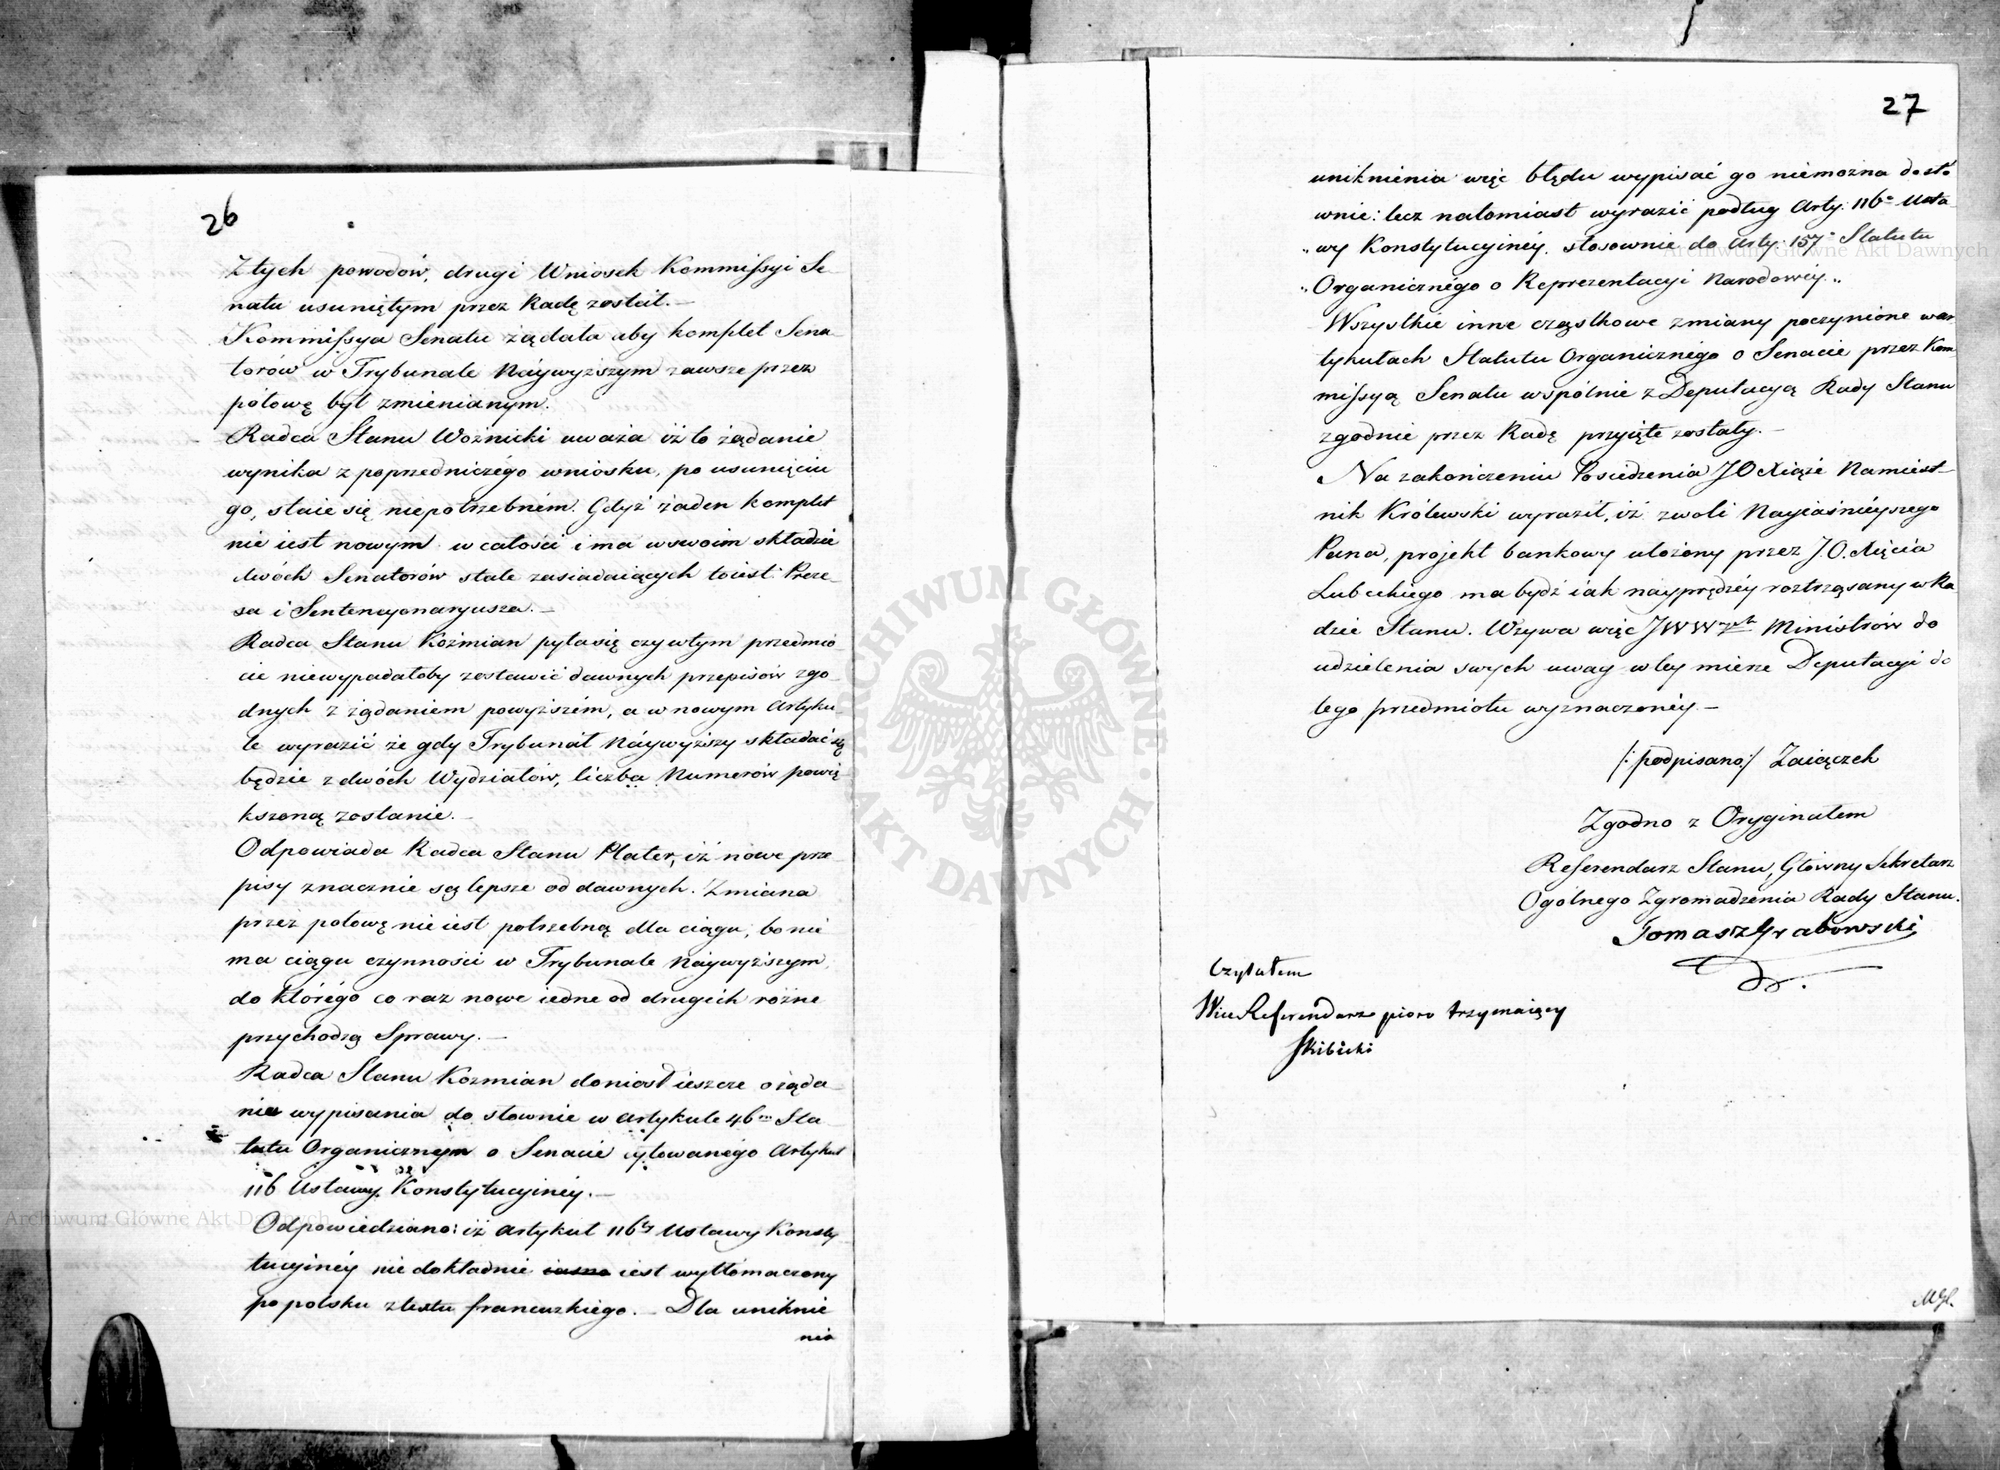 26
Z tych powodów, drugi Wniosek Kommissyi Se-
natu usuniętym przez Radę został.—
Kommissya Senatu żądała aby komplet Sena-
torów w Trybunale Náywyższym zawsze przez
połowę był zmienianym.
Radca Stanu Woźnicki uważa iż to żądanie
wynika z poprzedniczégo wniosku, po usunięciu
go, staie się niepotrzebném. Gdyż żaden komplet
nie iest nowym w całości i ma w swoim składzie
dwóch Senatorów stale zasiadaiących toiest: Preze-
sa i Sentencyonaryusza.—
Radca Stanu Koźmian pyta się czy w tym przedmio-
cie niewypadałoby zostawić dawnych przepisów zgo-
dnych z żądaniem powyższém, a w nowym Artyku-
le wyrazić że gdy Trybunał Náywyższy składać się
będzie z dwóch Wydziałów, liczba Numerów powię-
kszoną zostanie.—
Odpowiada Radca Stanu Plater, iż nowe prze-
pisy znacznie są lepsze od dawnych. Zmiana
przez połowę nie iest potrzebną dla ciągu, bo nie
ma ciągu czynności w Trybunale Náywyższym,
do którégo co raz nowe iedne od drugich różne
przychodzą Sprawy.—
Radca Stanu Kozmian doniosł ieszcze o żąda-
nie wypisania do słownie w artykule 46m Sta-
tutu Organicznym o Senacie cytowanégo Artykuł
116 Ustawy Konstytucyinéy.—
Odpowiedziano: iż artykuł 116ty Ustawy Konsty-
tucyinéy nie dokładnie iasno iest wytłómaczony
po polsku z textu francuzkiego.— Dla uniknie
nia
27
uniknienia więc błędu wypisać go niemożna dosło-
wnie: lecz natomiast wyrazić podług Arty: 116o Usta-
„wy Konstytucyinéy. stosownie do Arty: 157o Statutu
„Organicznégo o Reprezentacyi Narodowéy„
Wszystkie inne cząstkowe zmiany poczynione w ar-
tykułach Statutu Organicznégo o Senacie przez Kom-
missyą Senatu wspólnie z Deputacyą Rady Stanu
zgodnie przez Radę przyięte zostały.—
Na zakończeniu Posiedzenia JO Xiąże Namiest-
nik Królewski wyraził, iż z woli Nayiaśnieyszego
Pana, projekt bankowy ułożony przez J.O. Xięcia
Lubeckiego ma bydź iak nayprędzéy roztrząsany w Ra-
dzie Stanu. Wzywa więc JWW Ministrów do
udzielenia swych uwag w tey mierze Deputacyi do
tego przedmiotu wyznaczonéy.—
/: podpisano:/ Zaiączek
Zgodno z Oryginałem
Referendarz Stanu, Główny Sekretarz
Ogólnego Zgromadzenia Rady Stanu.
Tomasz Grabowski
Czytałem
Wice Referendarz pioro trzymaiący
Skibicki
Archiwum Główne Akt Dawnych
Archiwum Główne Akt Dawnych
ARCHIWUM GŁÓWNE AKT DAWNYCH